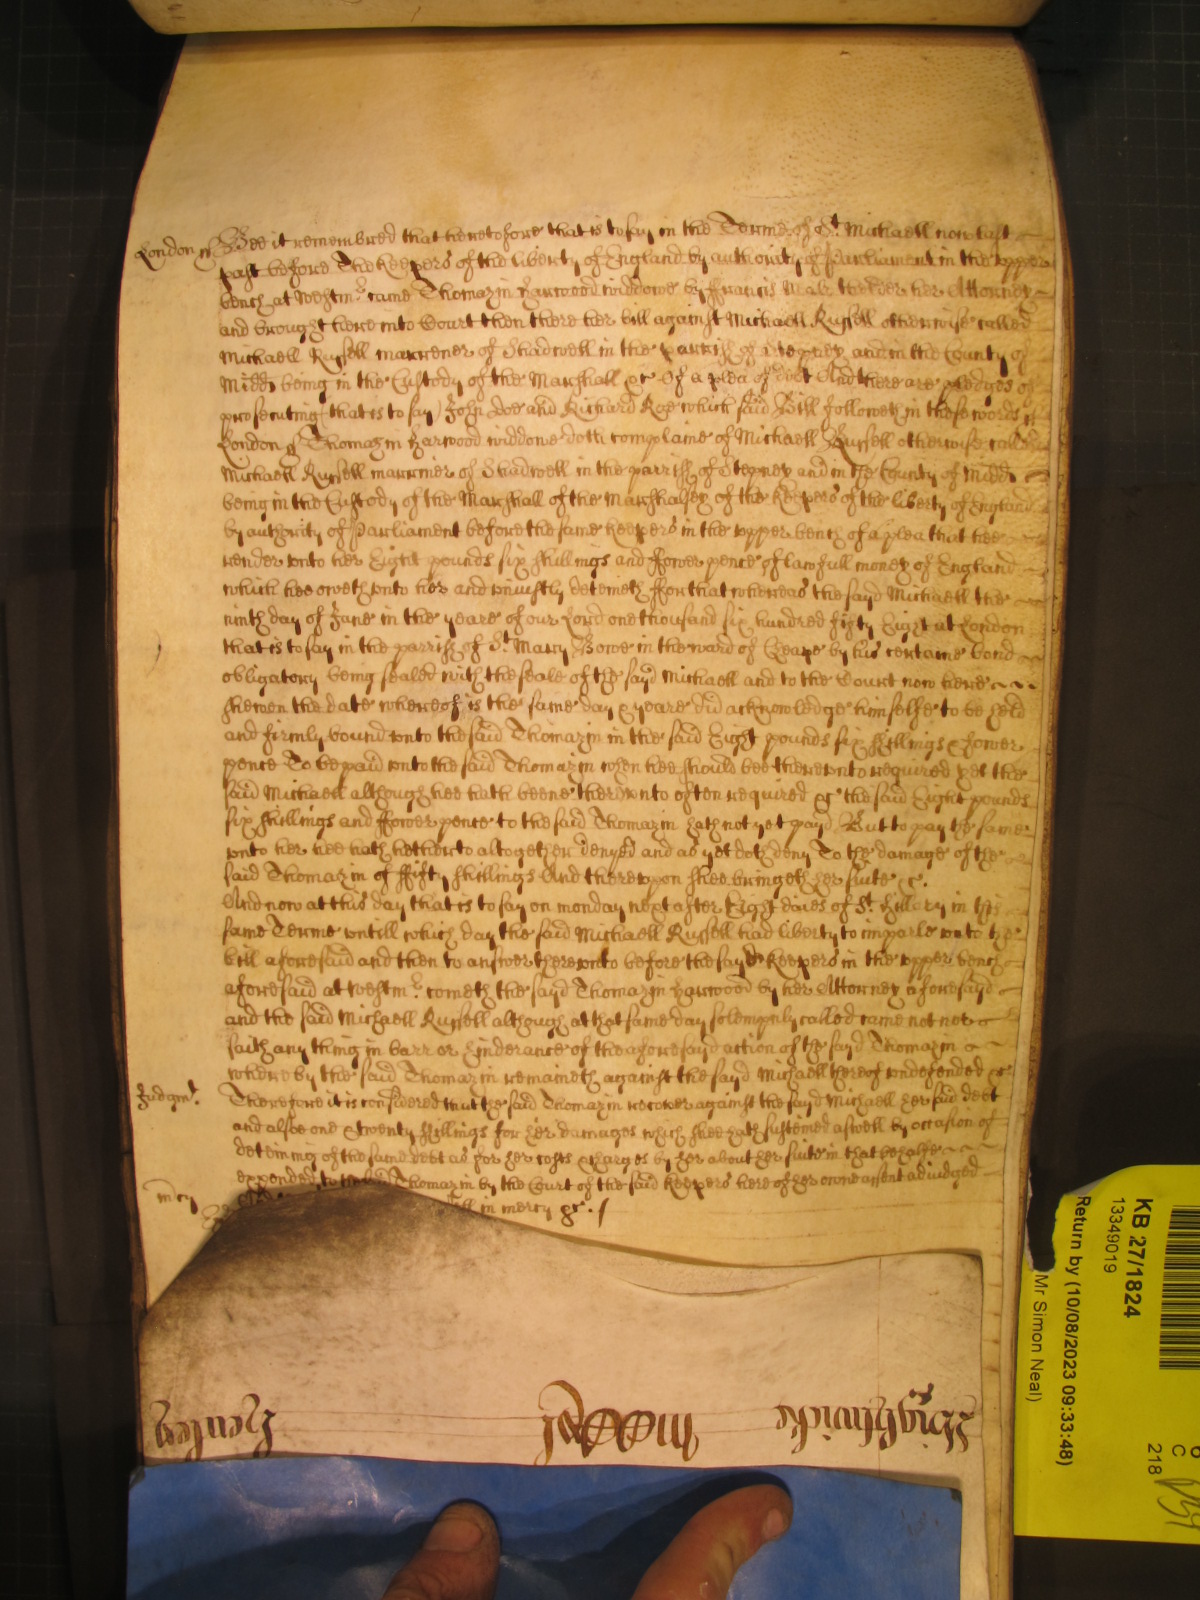 London ss Bee it remembred that heretofore that is to say in the Terme of St. Michaell now last
past before The Keepers of the liberty of England by authority of Parliament in the upper
bench at Westmr. came Thomazin Harwood widdowe by Francis her Attorney
and brought here into Court then there her bill against Michaell Russell otherwise called
Michaell Russell marrener of Shadwell in the parrish of Stepney and in the County of
Midd being in the Custody of the Marshall &c Of a plea of debt And there are pledges of
prosecuting that is to say John Doe and Richard Roe which said Bill followeth in these words ss
London ss Thomazin Harwood widdowe doth complaine of Michaell Russell otherwise called
Michaell Russell marriner of Shadwell in the parrish of Stepney and in the County of Midd
being in the Custody of the Marshall of the Marshalsey of the Keepers of the liberty of England
by authority of Parliament before the same Keepers in the upper bench of a plea that hee
render unto her Eight pounds six shillings and fower pence of lawfull money of England
which hee oweth unto her and uniustly deteineth For that whereas the sayd Michaell the
ninth day of June in the yeare of our Lord one thousand six hundred fifty Eight at London
that is to say in the parrish of St. Mary Bowe in the ward of Cheape by his certaine bond
obligatory being sealed with the seale of the sayd Michaell and to the Court now here
shewen the date whereof is the same day & yeare did acknowledge himselfe to be held
and firmly bound unto the said Thomazin in the said Eight pounds six shillings & fower
pence To be paid unto the said Thomazin when hee should bee thereunto required yet the
said Michaell although hee hath beene thereunto often required &c the said Eight pounds
six shillings and fower pence to the said Thomazin hath not yet payd But to pay the same
unto her hee hath hetherto altogether denyed and as yet doth deny To the damage of the
said Thomazin of Fifty shillings And thereupon shee bringeth her suite &c.
And now at this day that is to say on monday next after Eight daies of St. Hillary in this
same Terme untill which day the said Michaell Russell had liberty to imparle unto the
bill aforesaid and then to answer thereunto before the sayd Keepers in the upper bench
aforesaid at westmr. cometh the sayd Thomazin Harwood by her Attorney aforesayd
and the said Michaell Russell although at that same day solempnly called came not nor
saith any thing in barr or hinderance of the aforesayd action of the sayd Thomazin
whereby the said Thomazin remaineth against the sayd Michaell thereof undefended &c
Judgmt. Therefore it is considered that the said Thomazin recover against the sayd Michaell her said debt
and alsoe one & twenty shillings for her damages which shee hath susteined aswell by occasion of
deteining of the same debt as for her costs & charges by her about her suite in that behalfe
expended to the said Thomazin by the Court of the said Keepers here of her owne assent adiudged
mcy in mercy &c.
KB 27/1824
13349019
Return by (10/08/2023 09:33:48)
Mr Simon Neal)
C
218